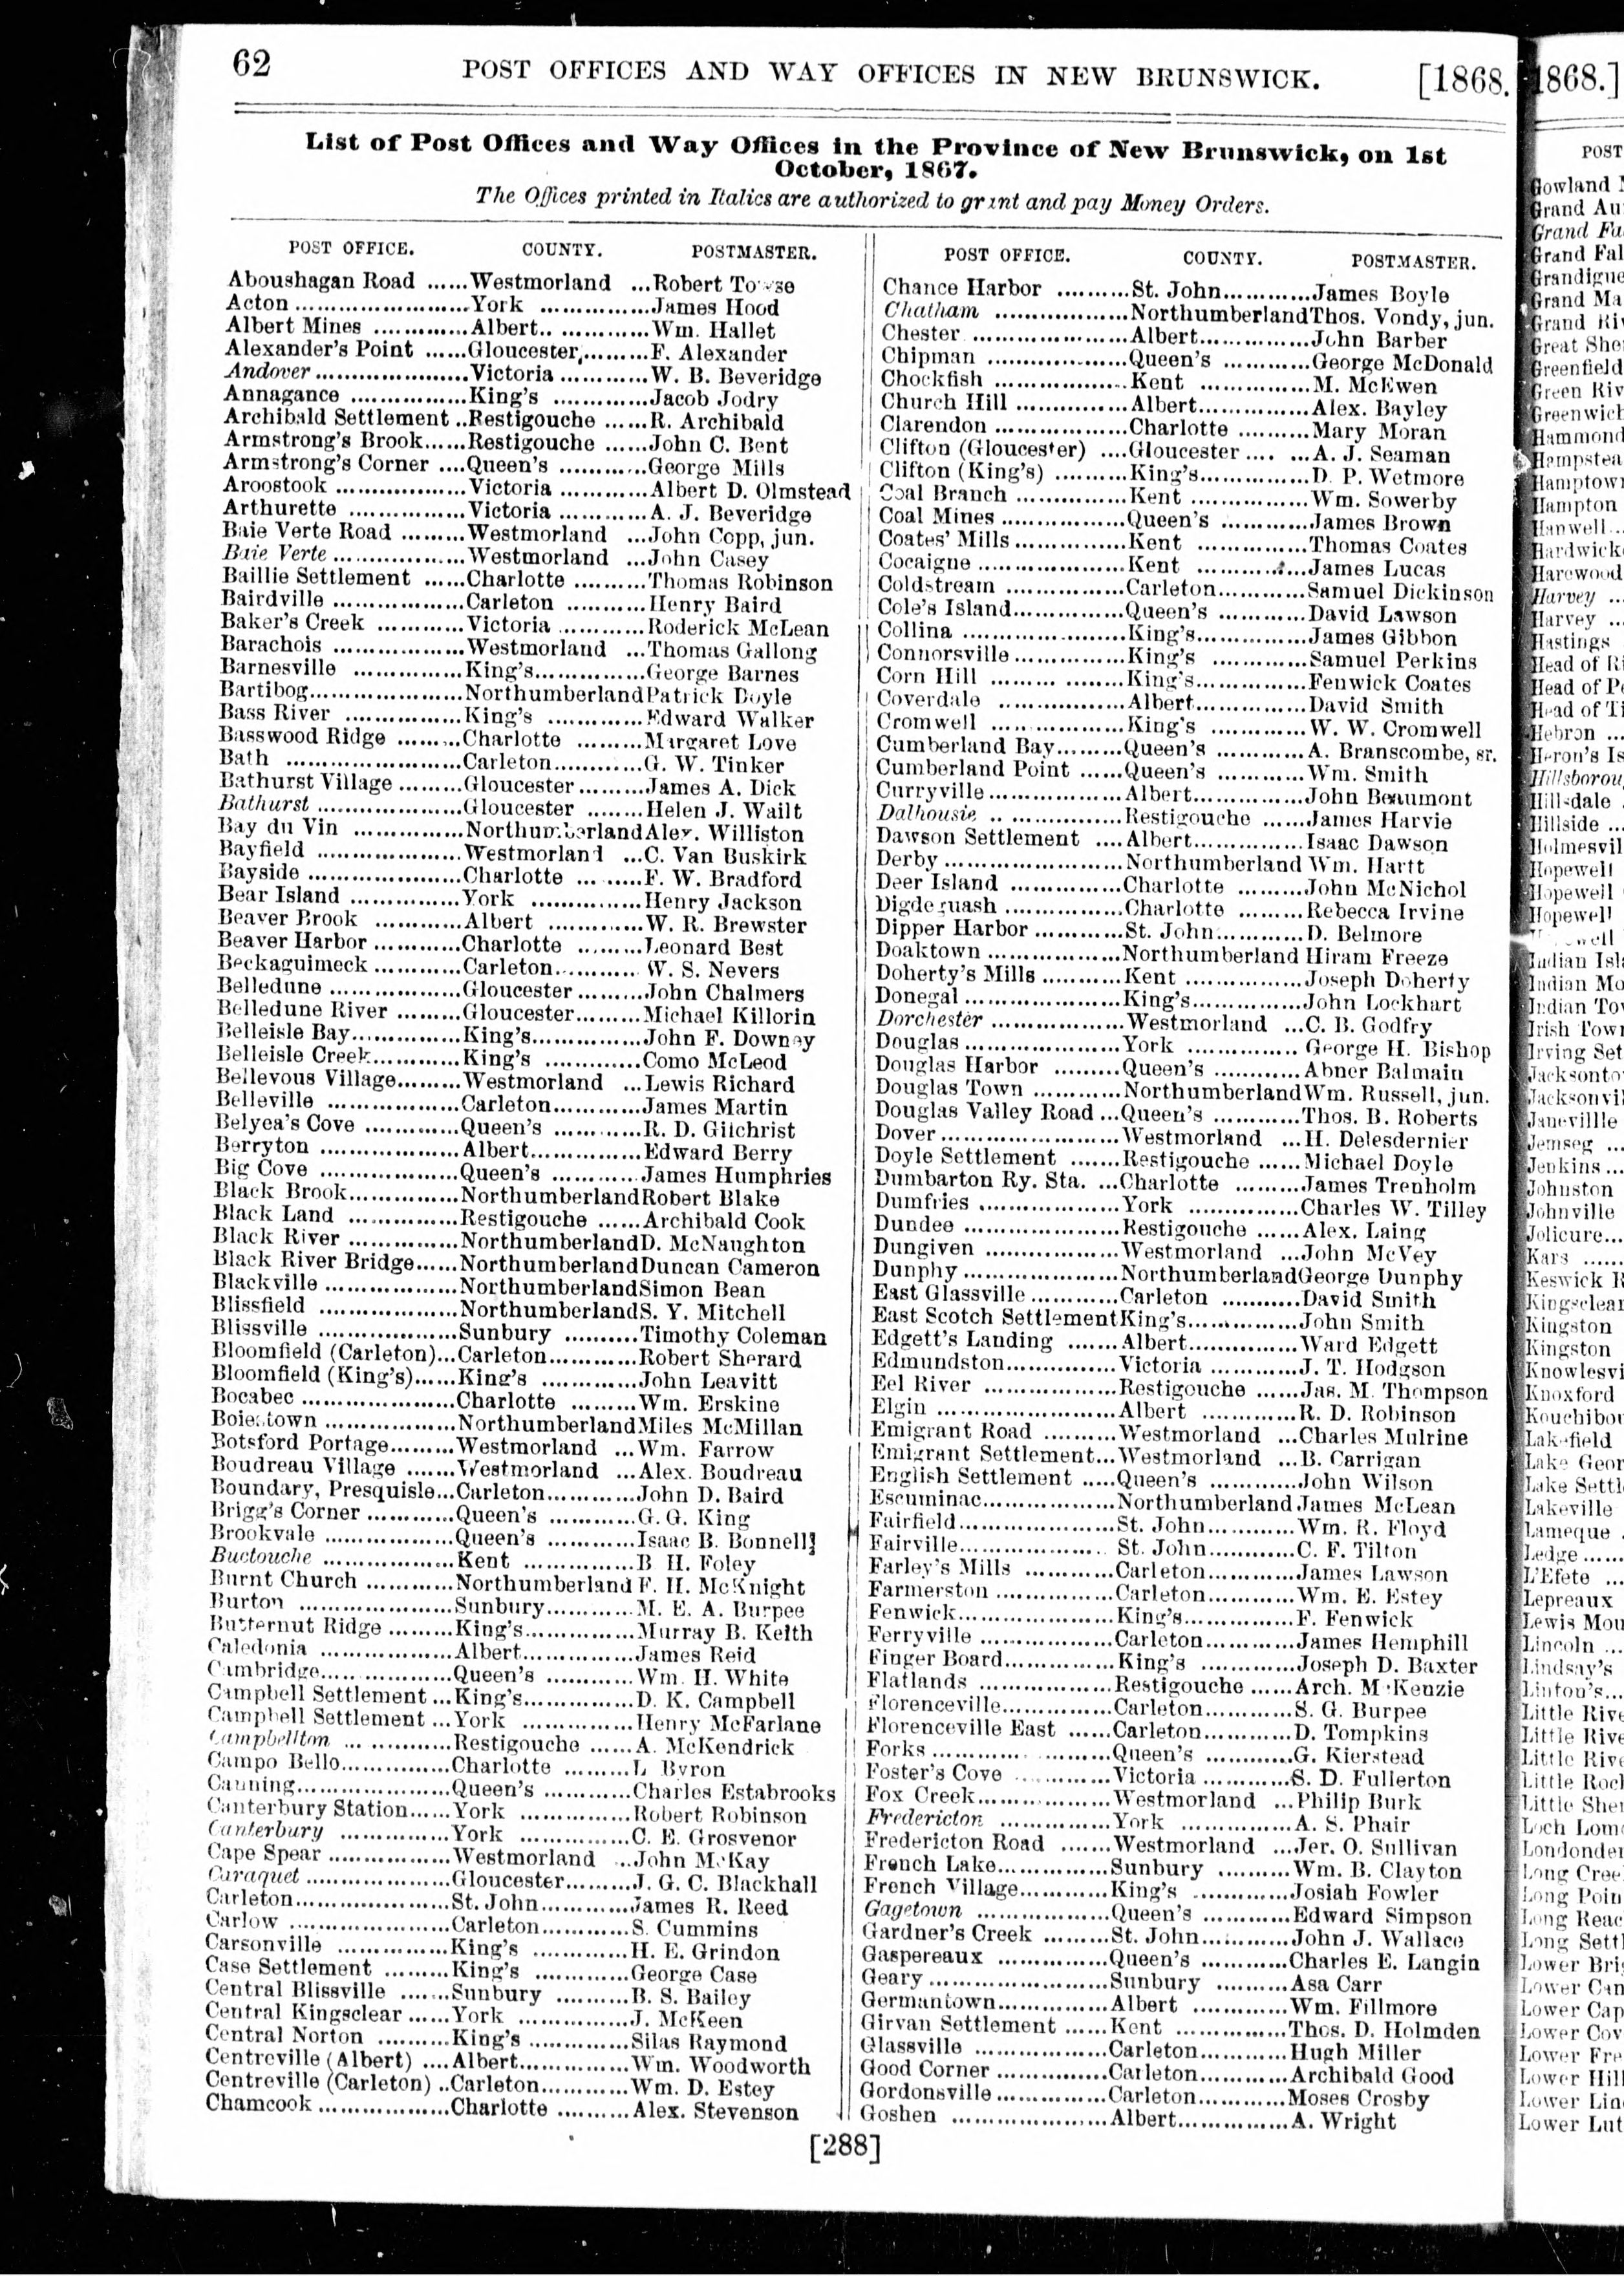 62 POST OFFICES AND WAY OFFICES IN NEW BRUNSWICK. [1868.
List of Post Offices and Way Offices in the Province of New Brunswick, on 1st
October, 1867.
The Offices printed in Italics are authorized to grant and pay Money Orders.
POST OFFICE. COUNTY. POSTMASTER.
Aboushagan Road ......Westmorland ...Robert
Acton ........................York ...............James Hood
Albert Mines .............Albert.. .............Wm. Hallet
Alexander's Point ......Gloucester..........F. Alexander
Andover.....................Victoria ............W. B. Beveridge
Annagance ................King's .............Jacob Jodry
Archibald Settlement ..Restigouche ......R. Archibald
Armstrong's Brook......Restigouche ......John C. Bent
Armstrong's Corner ....Queen's ............George Mills
Aroostook ..................Victoria ............Albert D. Olmstead
Arthurette ................Victoria ............A. J. Beveridge
Baie Verte Road .........Westmorland ...John Copp, jun.
Baie Verte ..................Westmorland ...John Casey
Baillie Settlement ......Charlotte ..........Thomas Robinson
Bairdville ..................Carleton ...........Henry Baird
Baker's Creek ............Victoria ............Roderick McLean
Barachois ..................Westmorland ...Thomas Gallong
Barnesville ...............King's...............George Barnes
Bartibog.....................Northumberland Patrick Doyle
Bass River ................King's .............Edward Walker
Basswood Ridge .........Charlotte .........Margaret Love
Bath ........................Carleton............G. W. Tinker
Bathurst Village .........Gloucester.........James A. Dick
Bathurst ....................Gloucester ........Helen J. Wailt
Bay du Vin ...............Northumberland Alex. Williston
Bayfield ....................Westmorland ...C. Van Buskirk
Bayside .....................Charlotte ... ......F. W. Bradford
Bear Island ...............York ...............Henry Jackson
Beaver Brook ............Albert .............W. R. Brewster
Beaver Harbor ............Charlotte .........Leonard Best
Beckaguimeck ............Carleton............W. S. Nevers
Belledune ..................Gloucester .........John Chalmers
Belledune River .........Gloucester.........Michael Killorin
Belleisle Bay...............King's...............John F. Downey
Belleisle Creek............King's .............Como McLeod
Bellevous Village.........Westmorland ...Lewis Richard
Belleville ..................Carleton............James Martin
Belyea's Cove .............Queen's ............R. D. Gilchrist
Berryton ...................Albert...............Edward Berry
Big Cove ...................Queen's ............James Humphries
Black Brook...............Northumberland Robert Blake
Black Land ...............Restigouche ......Archibald Cook
Black River ...............Northumberland D. McNaughton
Black River Bridge......Northumberland Duncan Cameron
Blackville ..................Northumberland Simon Bean
Blissfield ...................Northumberland S. Y. Mitchell
Blissville ...................Sunbury ..........Timothy Coleman
Bloomfield (Carleton)...Carleton............Robert Sherard
Bloomfield (King's)......King's .............John Leavitt
Bocabec .....................Charlotte .........Wm. Erskine
Boiestown ..................Northumberland Miles McMillan
Botsford Portage.........Westmorland ...Wm. Farrow
Boudreau Village .......Westmorland ...Alex. Boudreau
Boundary, Presquisle...Carleton............John D. Baird
Brigg's Corner ............Queen's ............G. G. King
Brookvale ..................Queen's ............Isaac B. Bonnell
Buctouche ..................Kent ...............B H. Foley
Burnt Church ............Northumberland F. H. McKnight
Burton .....................Sunbury............M. E. A. Burpee
Butternut Ridge .........King's...............Murray B. Keith
Caledonia ..................Albert...............James Reid
Cambridge..................Queen's ............Wm. H. White
Campbell Settlement ...King's...............D. K. Campbell
Campbell Settlement ...York ...............Henry McFarlane
Campbellton ...............Restigouche ......A. McKendrick
Campo Bello...............Charlotte .........L Byron
Canning.....................Queen's ............Charles Estabrooks
Canterbury Station......York ...............Robert Robinson
Canterbury ...............York ...............C. E. Grosvenor
Cape Spear .................Westmorland ...John McKay
Caraquet ....................Gloucester.........J. G. C. Blackhall
Carleton.....................St. John............James R. Reed
Carlow ......................Carleton............S. Cummins
Carsonville ...............King's .............H. E. Grindon
Case Settlement .........King's .............George Case
Central Blissville .......Sunbury ..........B. S. Bailey
Central Kingsclear ......York ...............J. McKeen
Central Norton ..........King's .............Silas Raymond
Centreville (Albert) ....Albert...............Wm. Woodworth
Centreville (Carleton) ..Carleton............Wm. D. Estey
Chamcook ..................Charlotte ..........Alex. Stevenson
POST OFFICE. COUNTY. POSTMASTER.
Chance Harbor ..........St. John............James Boyle
Chatham ..................Northumberland Thos. Vondy, jun.
Chester .....................Albert...............John Barber
Chipman ...................Queen's ............George McDonald
Chockfish ..................Kent ...............M. McEwen
Church Hill ...............Albert...............Alex. Bayley
Clarendon ..................Charlotte ..........Mary Moran
Clifton (Gloucester) ....Gloucester .... ...A. J. Seaman
Clifton (King's) ..........King's...............D. P. Wetmore
Coal Branch ...............Kent ................Wm. Sowerby
Coal Mines .................Queen's ............James Brown
Coates' Mills ...............Kent ...............Thomas Coates
Cocaigne ....................Kent ...............James Lucas
Coldstream ................Carleton............Samuel Dickinson
Cole's Island...............Queen's ............David Lawson
Collina ......................King's...............James Gibbon
Connorsville...............King's .............Samuel Perkins
Corn Hill ......... ........King's...............Fenwick Coates
Coverdale .................Albert...............David Smith
Cromwell ..................King's .............W. W. Cromwell
Cumberland Bay.........Queen's ............A. Branscombe, sr.
Cumberland Point ......Queen's ............Wm. Smith
Curryville ..................Albert...............John Beaumont
Dalhousie .. ...............Restigouche ......James Harvie
Dawson Settlement ....Albert...............Isaac Dawson
Derby ........................Northumberland Wm. Hartt
Deer Island ...............Charlotte .........John McNichol
Digdeguash ................Charlotte .........Rebecca Irvine
Dipper Harbor ............St. John............D. Belmore
Doaktown ..................Northumberland Hiram Freeze
Doherty's Mills ...........Kent ................Joseph Doherty
Donegal .....................King's...............John Lockhart
Dorchester ..................Westmorland ...C. B. Godfry
Douglas .....................York ...............George H. Bishop
Douglas Harbor .........Queen's ............Abner Balmain
Douglas Town ............Northumberland Wm. Russell, jun.
Douglas Valley Road ...Queen's ............Thos. B. Roberts
Dover ........................Westmorland ...H. Delesdernier
Doyle Settlement .......Restigouche ......Michael Doyle
Dumbarton Ry. Sta. ...Charlotte .........James Trenholm
Dumfries ...................York ...............Charles W. Tilley
Dundee .....................Restigouche ......Alex. Laing
Dungiven ..................Westmorland ...John McVey
Dunphy .....................Northumberland George Dunphy
East Glassville ............Carleton ...........David Smith
East Scotch Settlement King's...............John Smith
Edgett's Landing .......Albert...............Ward Edgett
Edmundston...............Victoria ............J. T. Hodgson
Eel River ..................Restigouche ......Jas. M. Thompson
Elgin ........................Albert .............R. D. Robinson
Emigrant Road ..........Westmorland ...Charles Mulrine
Emigrant Settlement...Westmorland ...B. Carrigan
English Settlement .....Queen's ............John Wilson
Escuminac..................Northumberland James McLean
Fairfield.....................St. John............Wm. R. Floyd
Fairville.................... St. John............C. F. Tilton
Farley's Mills ............Carleton............James Lawson
Farmerston ................Carleton............Wm. E. Estey
Fenwick.....................King's...............F. Fenwick
Ferryville ..................Carleton............James Hemphill
Finger Board...............King's .............Joseph D. Baxter
Flatlands ..................Restigouche ......Arch. McKenzie
Florenceville...............Carleton............S. G. Burpee
Florenceville East ......Carleton............D. Tompkins
Forks .........................Queen's ............G. Kierstead
Foster's Cove .............Victoria ............S. D. Fullerton
Fox Creek..................Westmorland ...Philip Burk
Fredericton ...............York ...............A. S. Phair
Fredericton Road .......Westmorland ...Jer. O. Sullivan
French Lake...............Sunbury ..........Wm. B. Clayton
French Village............King's .............Josiah Fowler
Gagetown ..................Queen's ............Edward Simpson
Gardner's Creek .........St. John............John J. Wallace
Gaspereaux ...............Queen's ............Charles E. Langin
Geary ........................Sunbury ..........Asa Carr
Germantown...............Albert .............Wm. Fillmore
Girvan Settlement ......Kent ...............Thos. D. Holmden
Glassville ..................Carleton............Hugh Miller
Good Corner ...............Carleton............Archibald Good
Gordonsville ...............Carleton............Moses Crosby
Goshen ......................Albert...............A. Wright
[288]
1868.]
POST
Gowland
Grand
Grand
Grand
Grandigue
Grand
Grand
Great
Greenfield
Green
Greenwich
Hampton
Hanwell
Harvey
Harvey
Hastings
Head of
Head of
Head of
Hebron
Hillsdale
Hillside
Hopewell
Hopewell
Hopewell
Indian
Indian
Indian
Irish
Irving
Jemseg
Jenkins
Johnston
Johnville
Jolicure
Kars
Keswick
Kingston
Kingston
Knoxford
Lakefield
Lake
Lake
Lakeville
Lameque
Ledge
L'Etete
Lepreaux
Lewis
Lincoln
Lindsay's
Linton's
Little
Little
Little
Little
Little
Loch
Long
Long
Long
Long
Lower
Lower
Lower
Lower
Lower
Lower
Lower
Lower